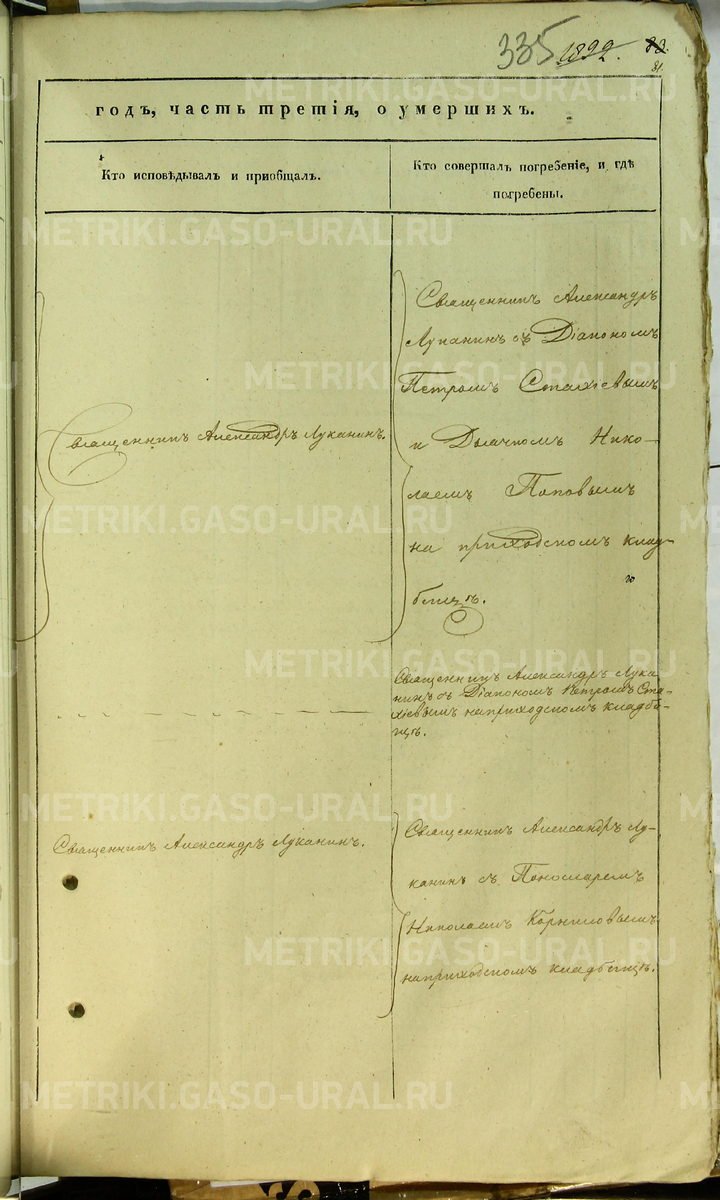 335 1899. 82.
81
годъ, часть третія, о умершихъ.
Кто исповѣдывалъ и пріобщалъ.
Кто совершалъ погребеніе, и гдѣ
погребены.
Священникъ Александръ Луканинъ.
Священникъ Александръ
Луканинъ съ Діакономъ
Петромъ Стахіевымъ
и Дьячкомъ Нико-
лаемъ Поповымъ
на приходскомъ клад-
бищѣ.
Священникъ Александръ Лука
нинъ съ Діакономъ Петромъ Ста-
хіевымъ на приходскомъ кладби-
щѣ.
Священникъ Александръ Луканинъ.
Священникъ Александръ Лу-
канинъ съ Пономаремъ
Николаемъ Корниловымъ
на приходскомъ кладбищѣ.
METRIKI.GASO-URAL.RU